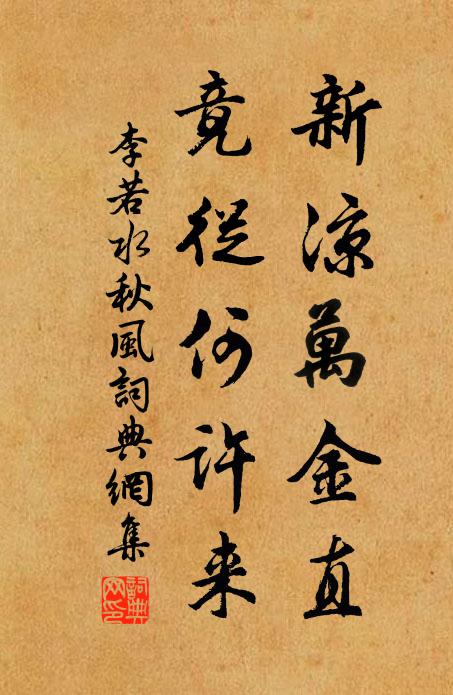 新涼萬金直
竟從何許来
李若水秋風詞典網集
詞典網印